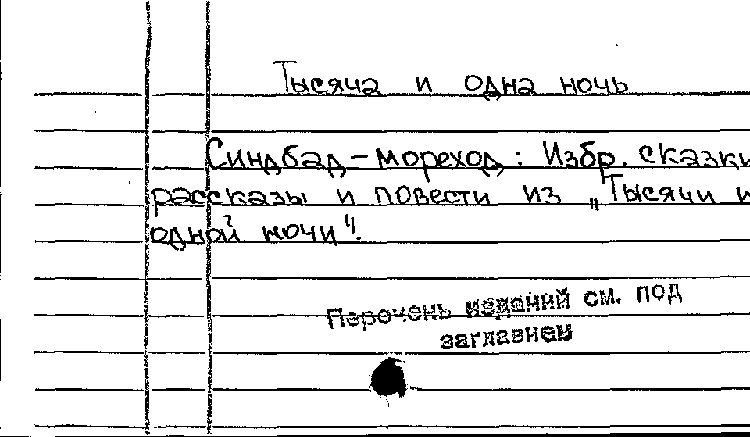 Тысяча и одна ночь
Синдбад-мореход: Избр. сказки
рассказы и повести из „Тысячи и
одной ночи".
Перечень изданий см. под
заглавием